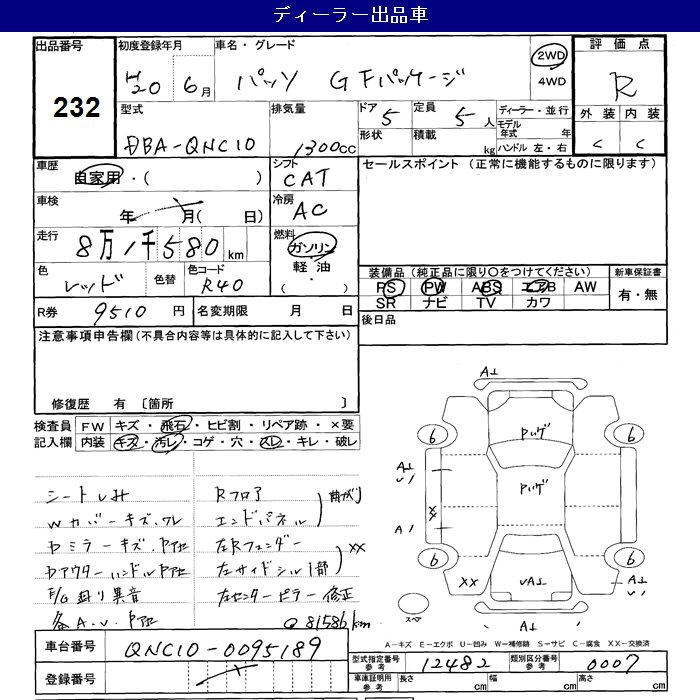 ディーラー出品車
出品番号 232
初度登録年月 H20 6月
車名・グレード パッソ G Fパッケージ
2WD
4WD
評価点 R
外装 内装
C C
型式 DBA-QNC10
排気量 1300cc
ドア 5
形状
定員 5人
積載 kg
ディーラー・並行
モデル年式 年
ハンドル 左・右
車歴 自家用・( )
シフト CAT
セールスポイント (正常に機能するものに限ります)
車検 年 月( 日)
冷房 AC
走行 8万1千580km
燃料 ガソリン
軽油
・( )
色 レッド 色替 色コード R40
装備品 (純正品に限り○をつけてください)
新車保証書
PS PW ABS エアB AW
SR ナビ TV カワ
有・無
R券 9510円
名変期限 月 日
後日品
注意事項申告欄 (不具合内容等は具体的に記入して下さい)
修復歴 有 〔箇所 〕
検査員記入欄
FW キズ・飛石・ヒビ割・リペア跡・×要
内装 キズ・汚レ・コゲ・穴・スレ・キレ・破レ
シートしみ
Wカバーキズ、ワレ
Rフロア
エンドパネル
曲がり
左Rフェンダー
左サイドシル1部
XX
左センターピラー修正
81586km
車台番号 QNC10-0095189
登録番号
A1
6 6
Pハゲ
Pハゲ
A1
U1
A1
XX
6 6
XX
UA1
A1
U1
スペア
A1
A-キズ E-エクボ U-凹み W-補修跡 S-サビ C-腐食 XX-交換済
型式指定番号 参考 12482
類別区分番号 参考 0007
車庫証明用 参考 長さ cm 幅 cm 高さ cm